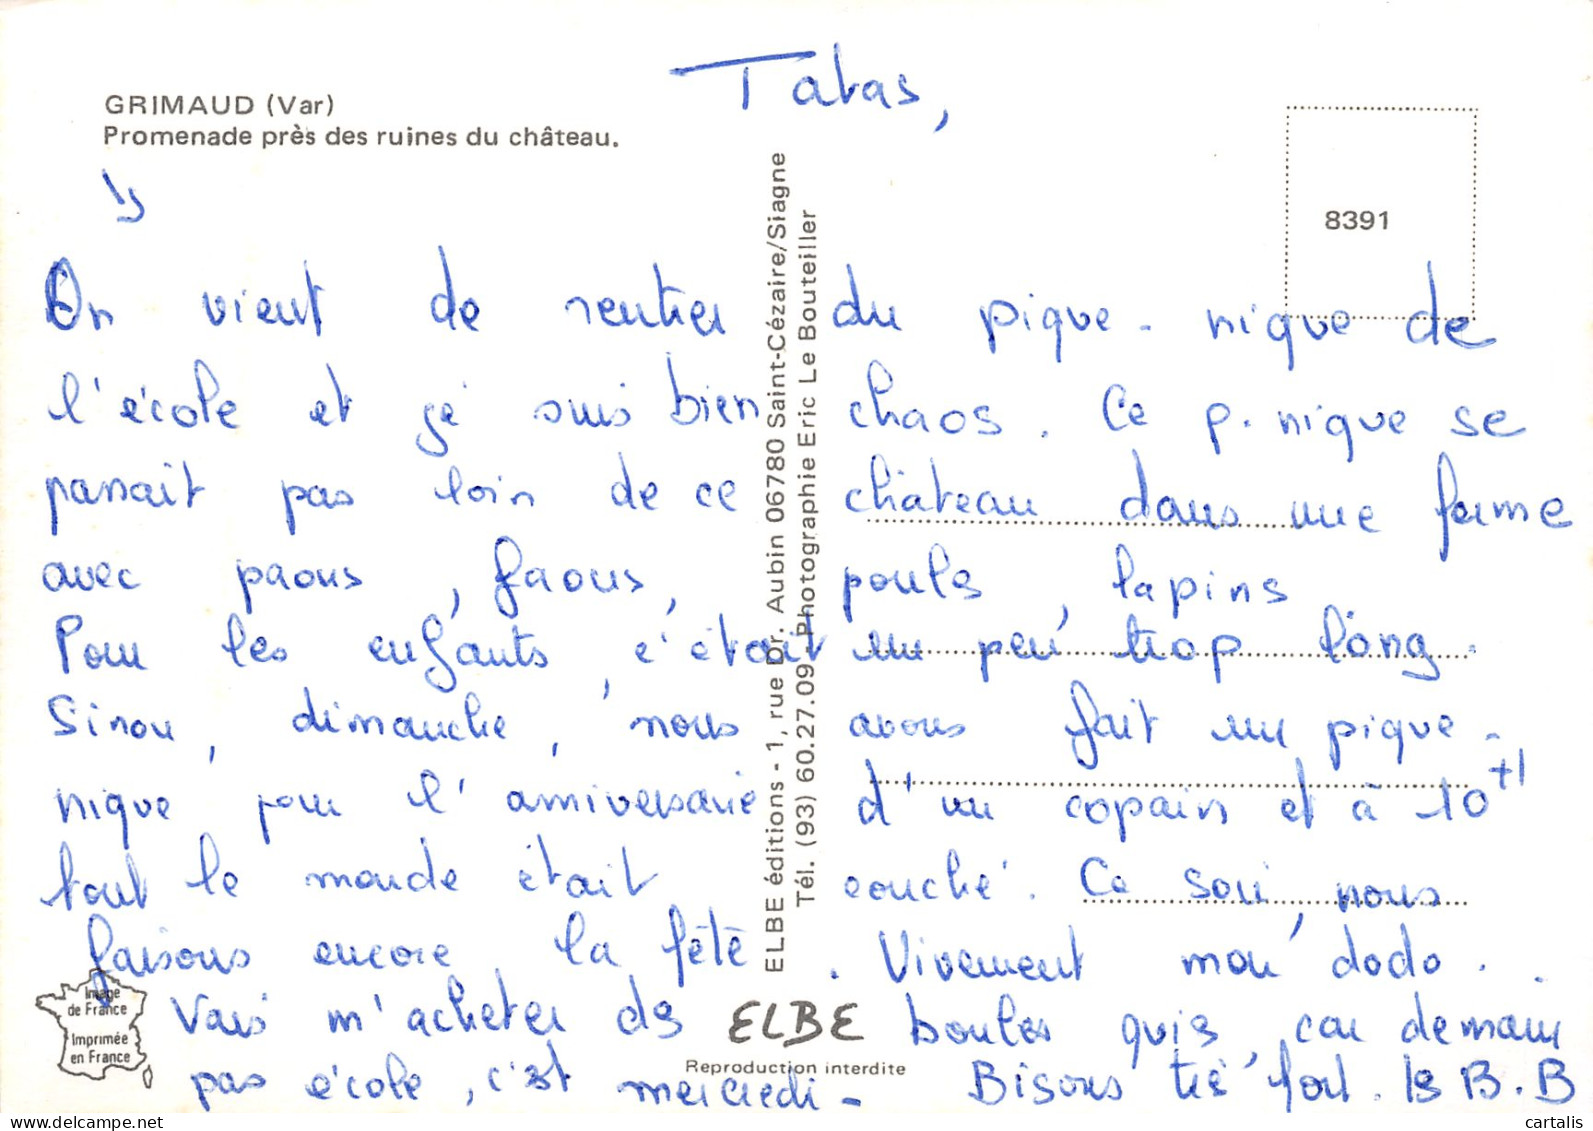 Tatas,
GRIMAUD (Var)
Promenade près des ruines du château.
8391
On vient de rentrer du pique-nique de
l'école et gé suis bien chaos. Ce p.nique se
passait pas loin de ce château dans une ferme
avec paons, faons, pouls, lapins
Pour les enfants, c'était un peu trop long.
Sinon, dimanche, nous avons fait un pique-
nique pour l'anniversaire d'un copain et à 10+1
tout le monde était couché. Ce soir, nous
faisons encore la fête. Vivement mon dodo.
Vais m'acheter ds boules quis, car demain
pas école, c'est mercredi - Bisous très fort. ls B.B
ELBE éditions - 1, rue Dr. Aubin 06780 Saint-Cézaire/Siagne
Tél. (93) 60.27.09 - Photographie Eric Le Bouteiller
Image
de France
Imprimée
en France
ELBE
Reproduction interdite
cartalis